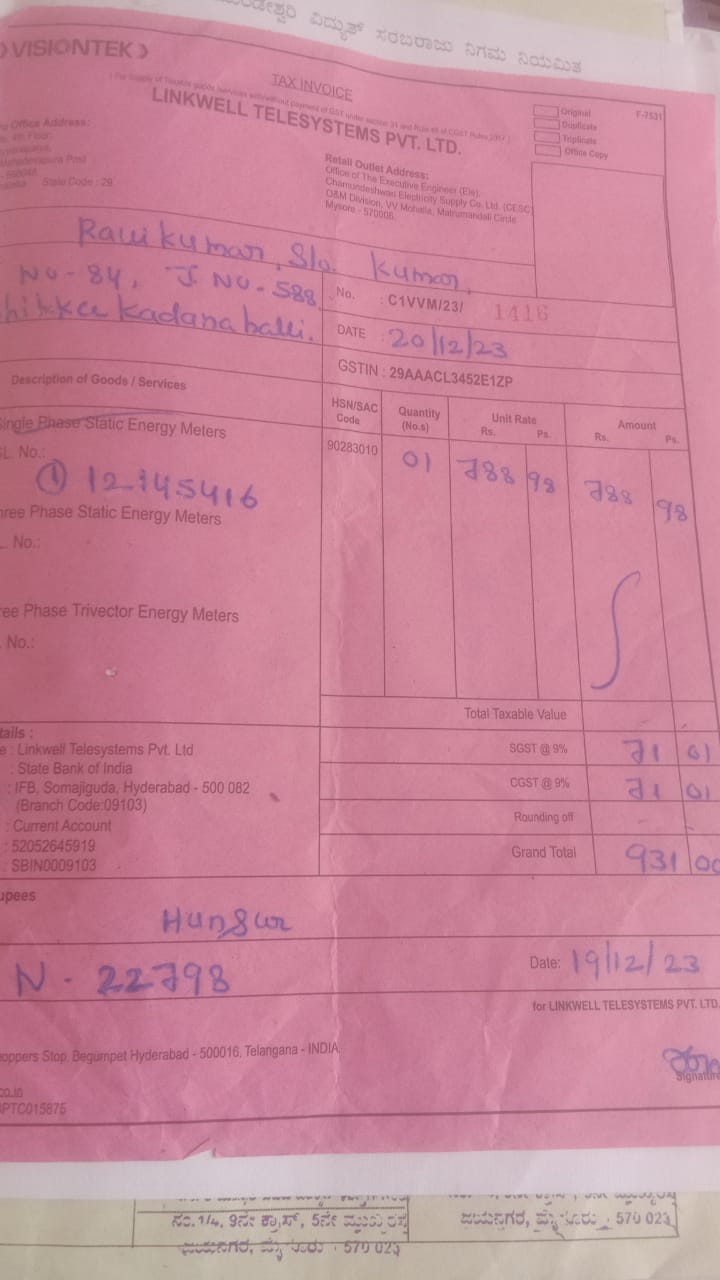 ವಿದ್ಯುತ್ ಸರಬರಾಜು ನಿಗಮ ನಿಯಮಿತ
VISIONTEK
TAX INVOICE
LINKWELL TELESYSTEMS PVT. LTD.
Original
F-7531
Duplicate
Triplicate
Office Copy
Office Address:
State Code : 29
Retail Outlet Address:
Office of The Executive Engineer (Ele),
Chamundeshwari Electricity Supply Co. Ltd. (CESC)
O&M Division, VV Mohalla, Matrumandali Circle
Mysore - 570006.
Ravikumar, S/o. Kumar,
No-84, J NO-588
No. : C1VVM/23/ 1416
DATE : 20/12/23
GSTIN : 29AAACL3452E1ZP
Description of Goods / Services
HSN/SAC Code
Quantity (No.s)
Unit Rate Rs. Ps.
Amount Rs. Ps.
Single Phase Static Energy Meters
90283010 01 788 98 788 98
SL. No.:
① 12145416
Three Phase Static Energy Meters
No.:
Three Phase Trivector Energy Meters
No.:
Total Taxable Value
SGST @ 9% 71 01
CGST @ 9% 71 01
Rounding off
Grand Total 931 00
: Linkwell Telesystems Pvt. Ltd
: State Bank of India
: IFB, Somajiguda, Hyderabad - 500 082
(Branch Code:09103)
: Current Account
: 52052645919
: SBIN0009103
Rupees
Hunsur
N - 22798
Date: 19/12/23
for LINKWELL TELESYSTEMS PVT. LTD.
Shoppers Stop, Begumpet Hyderabad - 500016, Telangana - INDIA.
Signature
co.in
PTC015875
ನಂ. 1/4, 9ನೇ ಕ್ರಾಸ್, 5ನೇ ಮುಖ್ಯ ರಸ್ತೆ
ಜಯನಗರ, ಮೈಸೂರು - 570 023
ಜಯನಗರ, ಮೈಸೂರು - 570 023